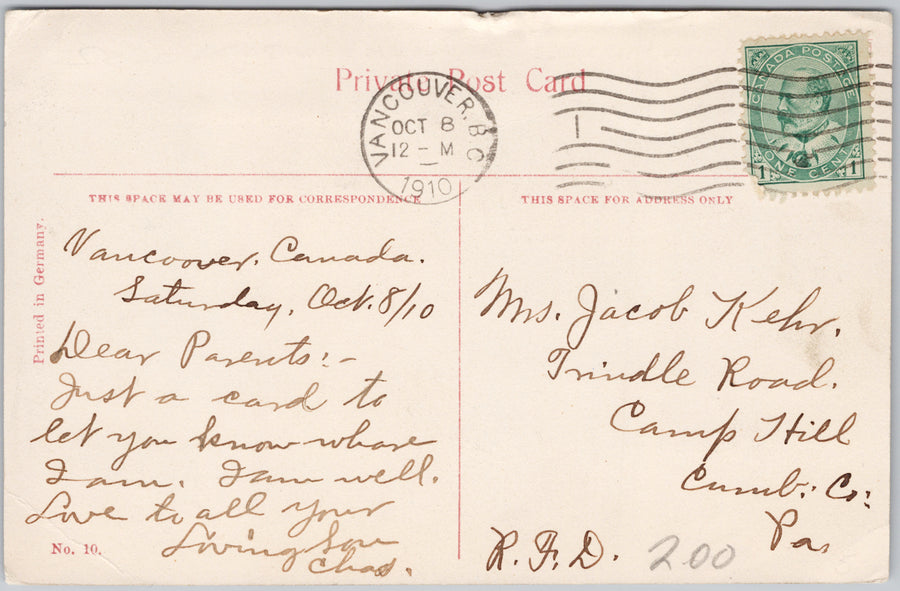 Private Post Card
VANCOUVER, B.C
OCT 8
12 - M
1910
CANADA POSTAGE
ONE CENT
1 1
THIS SPACE MAY BE USED FOR CORRESPONDENCE
THIS SPACE FOR ADDRESS ONLY
Printed in Germany.
Vancoover, Canada.
Saturday, Oct. 8/10
Dear Parents:-
Just a card to
let you know where
I am. I am well.
Love to all your
Loving Son
Chas.
No. 10.
Mrs. Jacob Kehr.
Trindle Road.
Camp Hill
Cumb. Co:
Pa,
R.F.D.
200